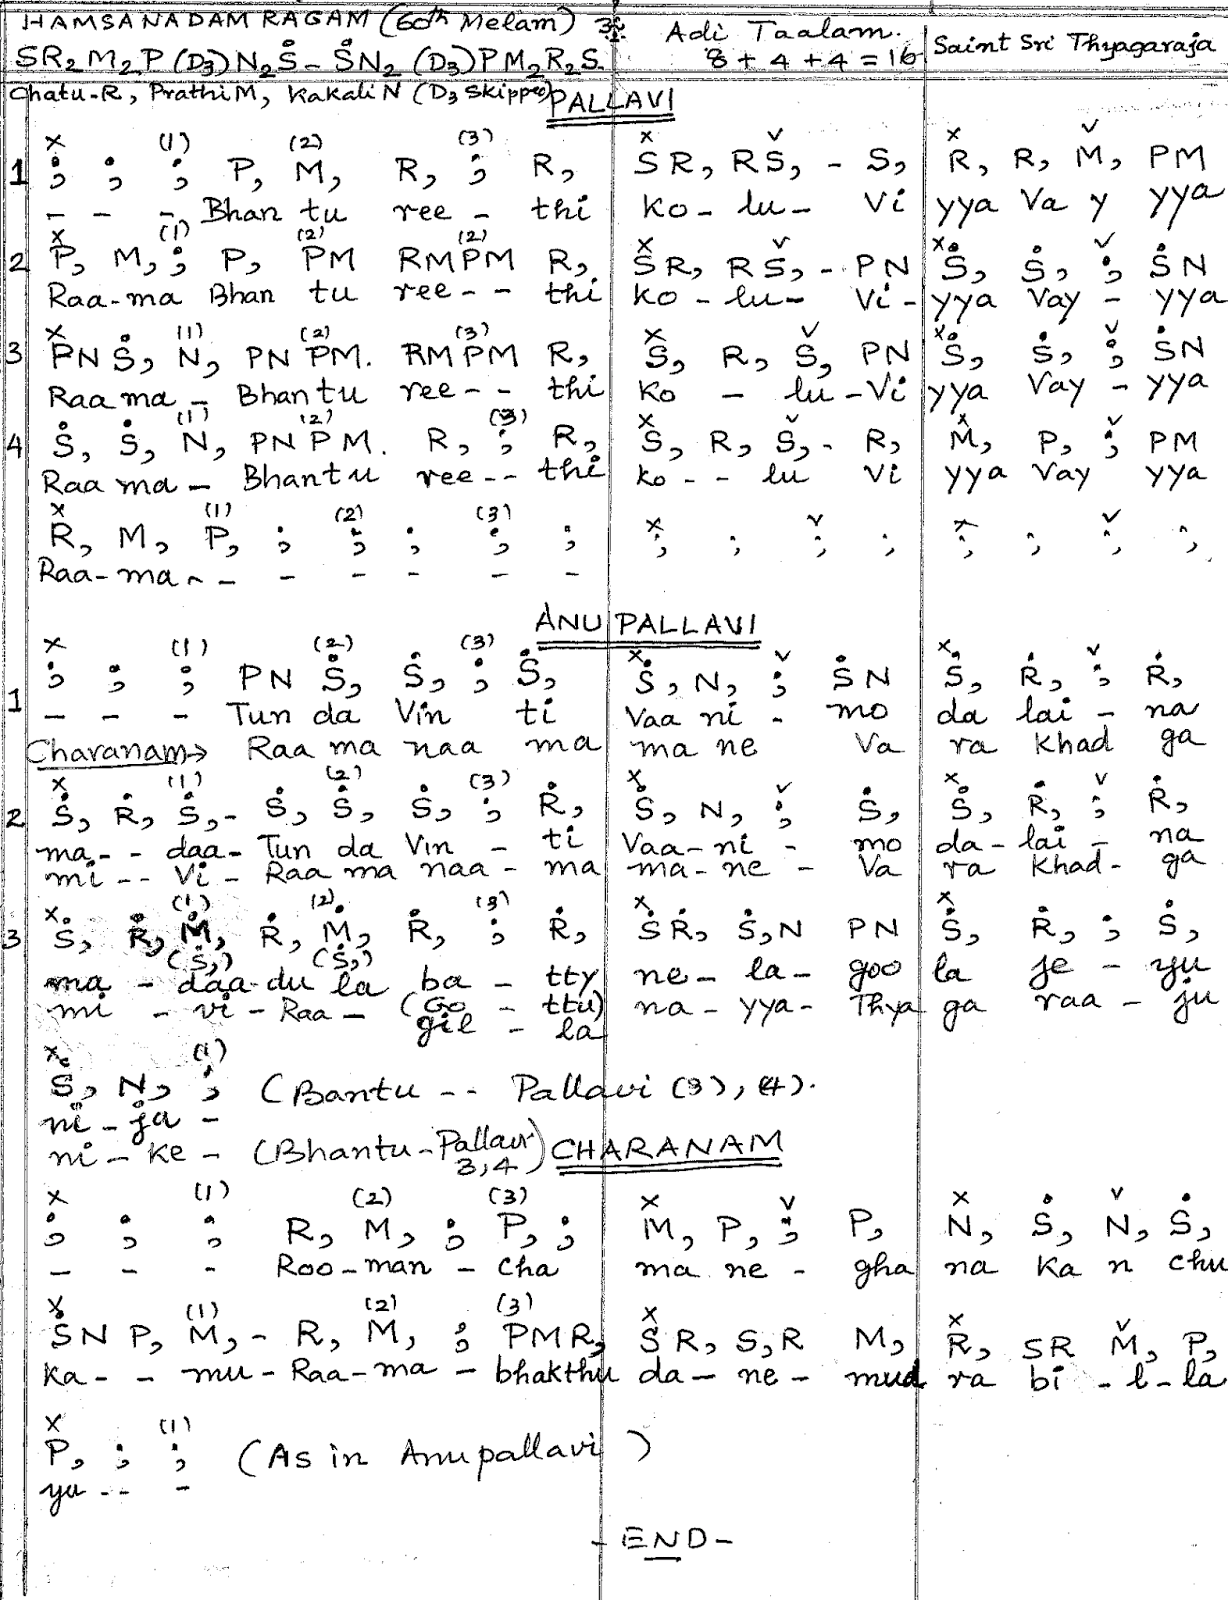 HAMSANADAM RAGAM (60th Melam) Adi Taalam. Saint Sri Thyagaraja
SR₂M₂P(D₃)N₂Ṡ – ṠN₂(D₃)PM₂R₂S. 8+4+4=16
Chatu-R, PrathiM, KakaliN (D₃ Skipped)
PALLAVI
x (1) (2) (3) x v x v
1 ; ; ; P, M, R, ; R, SR, RS, - S, R, R, M, PM
- - -, Bhan tu ree - thi ko - lu - Vi yya Va y yya
x (1) (2) (2) x v x v
2 P, M, ; P, PM RMPM R, SR, RS, - PN Ṡ, Ṡ, ; ṠN
Raa-ma Bhan tu ree - - thi ko - lu - Vi - yya Vay - yya
x (1) (2) (3) x v x v
3 PN Ṡ, N, PN PM. RMPM R, S, R, S, PN Ṡ, Ṡ, ; ṠN
Raa ma - Bhan tu ree - - thi ko - lu - Vi yya Vay - yya
(1) (2) (3) x v x v
4 Ṡ, Ṡ, N, PN PM. R, ; R, S, R, S, - R, M, P, ; PM
Raa ma - Bhantu ree - - thi ko - - lu Vi yya Vay yya
x (1) (2) (3) x v x v
R, M, P, ; ; ; ; ; ; ; ; ; ; ; ; ;
Raa-ma - - - - - - -
ANUPALLAVI
x (1) (2) (3) x v x v
1 ; ; ; PN Ṡ, Ṡ, ; Ṡ, Ṡ, N, ; ṠN Ṡ, Ṙ, ; Ṙ,
- - - Tun da Vin ti Vaa ni - mo da lai - na
Charanam→ Raa ma naa ma ma ne Va ra Khad ga
x (1) (2) (3) x v x v
2 Ṡ, Ṙ, Ṡ, - Ṡ, Ṡ, Ṡ, ; Ṙ, Ṡ, N, ; Ṡ, Ṡ, Ṙ, ; Ṙ,
ma - - daa - Tun da Vin - ti Vaa - ni - mo da - lai - na
mi - - Vi - Raa ma naa - ma ma - ne - Va ra Khad - ga
x (1) (2). (3) x x
3 Ṡ, Ṙ, Ṁ, Ṙ, Ṁ, Ṙ, ; Ṙ, ṠṘ, Ṡ,N PN Ṡ, Ṙ, ; Ṡ,
(Ṡ,) (Ṡ,)
ma - daa-du la ba - tty ne - la - goo la je - yu
mi - vi - Raa - (Go - ttu) na - yya - Thya ga raa - ju
gil - la
x (1)
Ṡ, N, ; (Bantu -- Pallavi (3), (4).
ni - ja -
ni - ke - (Bhantu - Pallavi 3,4)
CHARANAM
x (1) (2) (3) x v x v
; ; ; R, M, ; P, ; M, P, ; P, N, Ṡ, N, Ṡ,
- - - Roo - man - cha ma ne - gha na Ka n chu
x (1) (2) (3) x x v
ṠN P, M, - R, M, ; PMR, SR, S,R M, R, SR M, P,
Ka - - mu - Raa-ma - bhakthu da - ne - mud ra bi - l - la
x (1)
P, ; ; (As in Anupallavi )
yu - - -
- END -